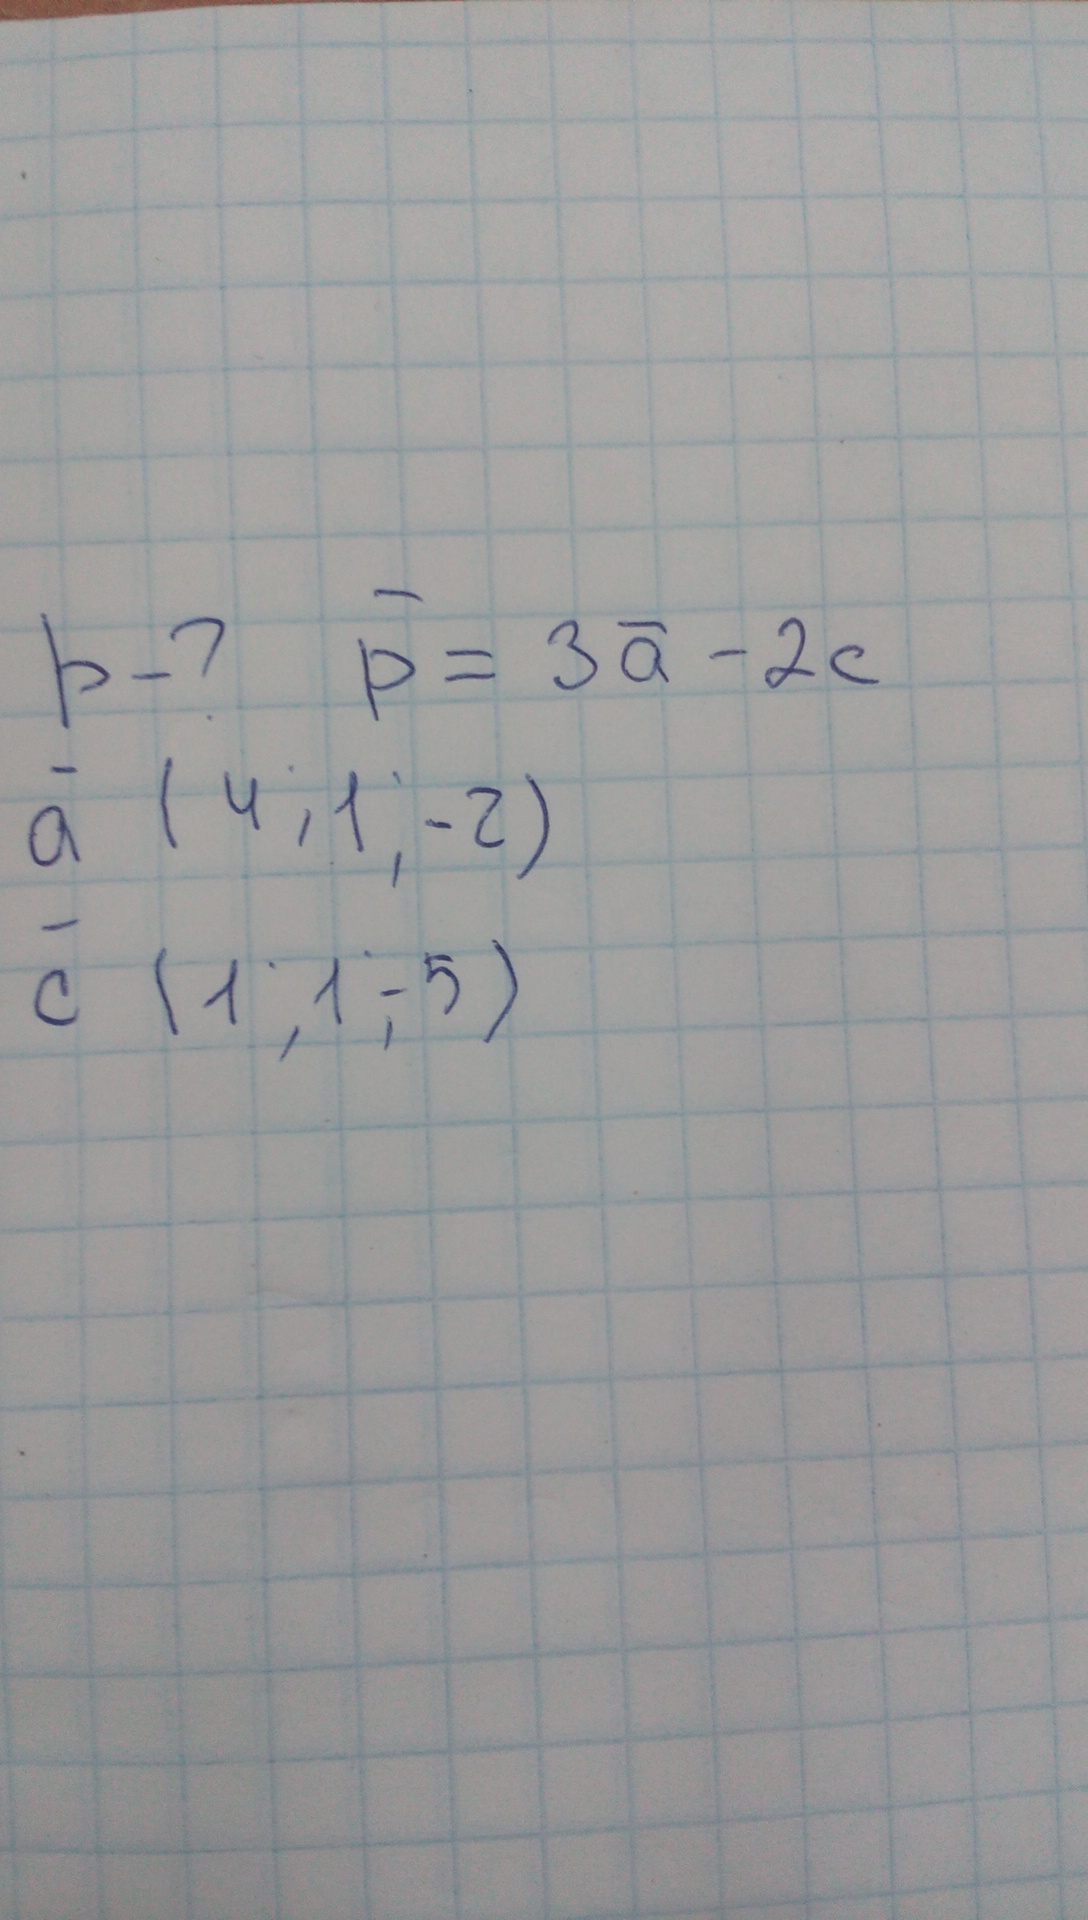 p - ? p̅ = 3a̅ - 2c
a̅ (4; 1; -2)
c̅ (1; 1; -5)